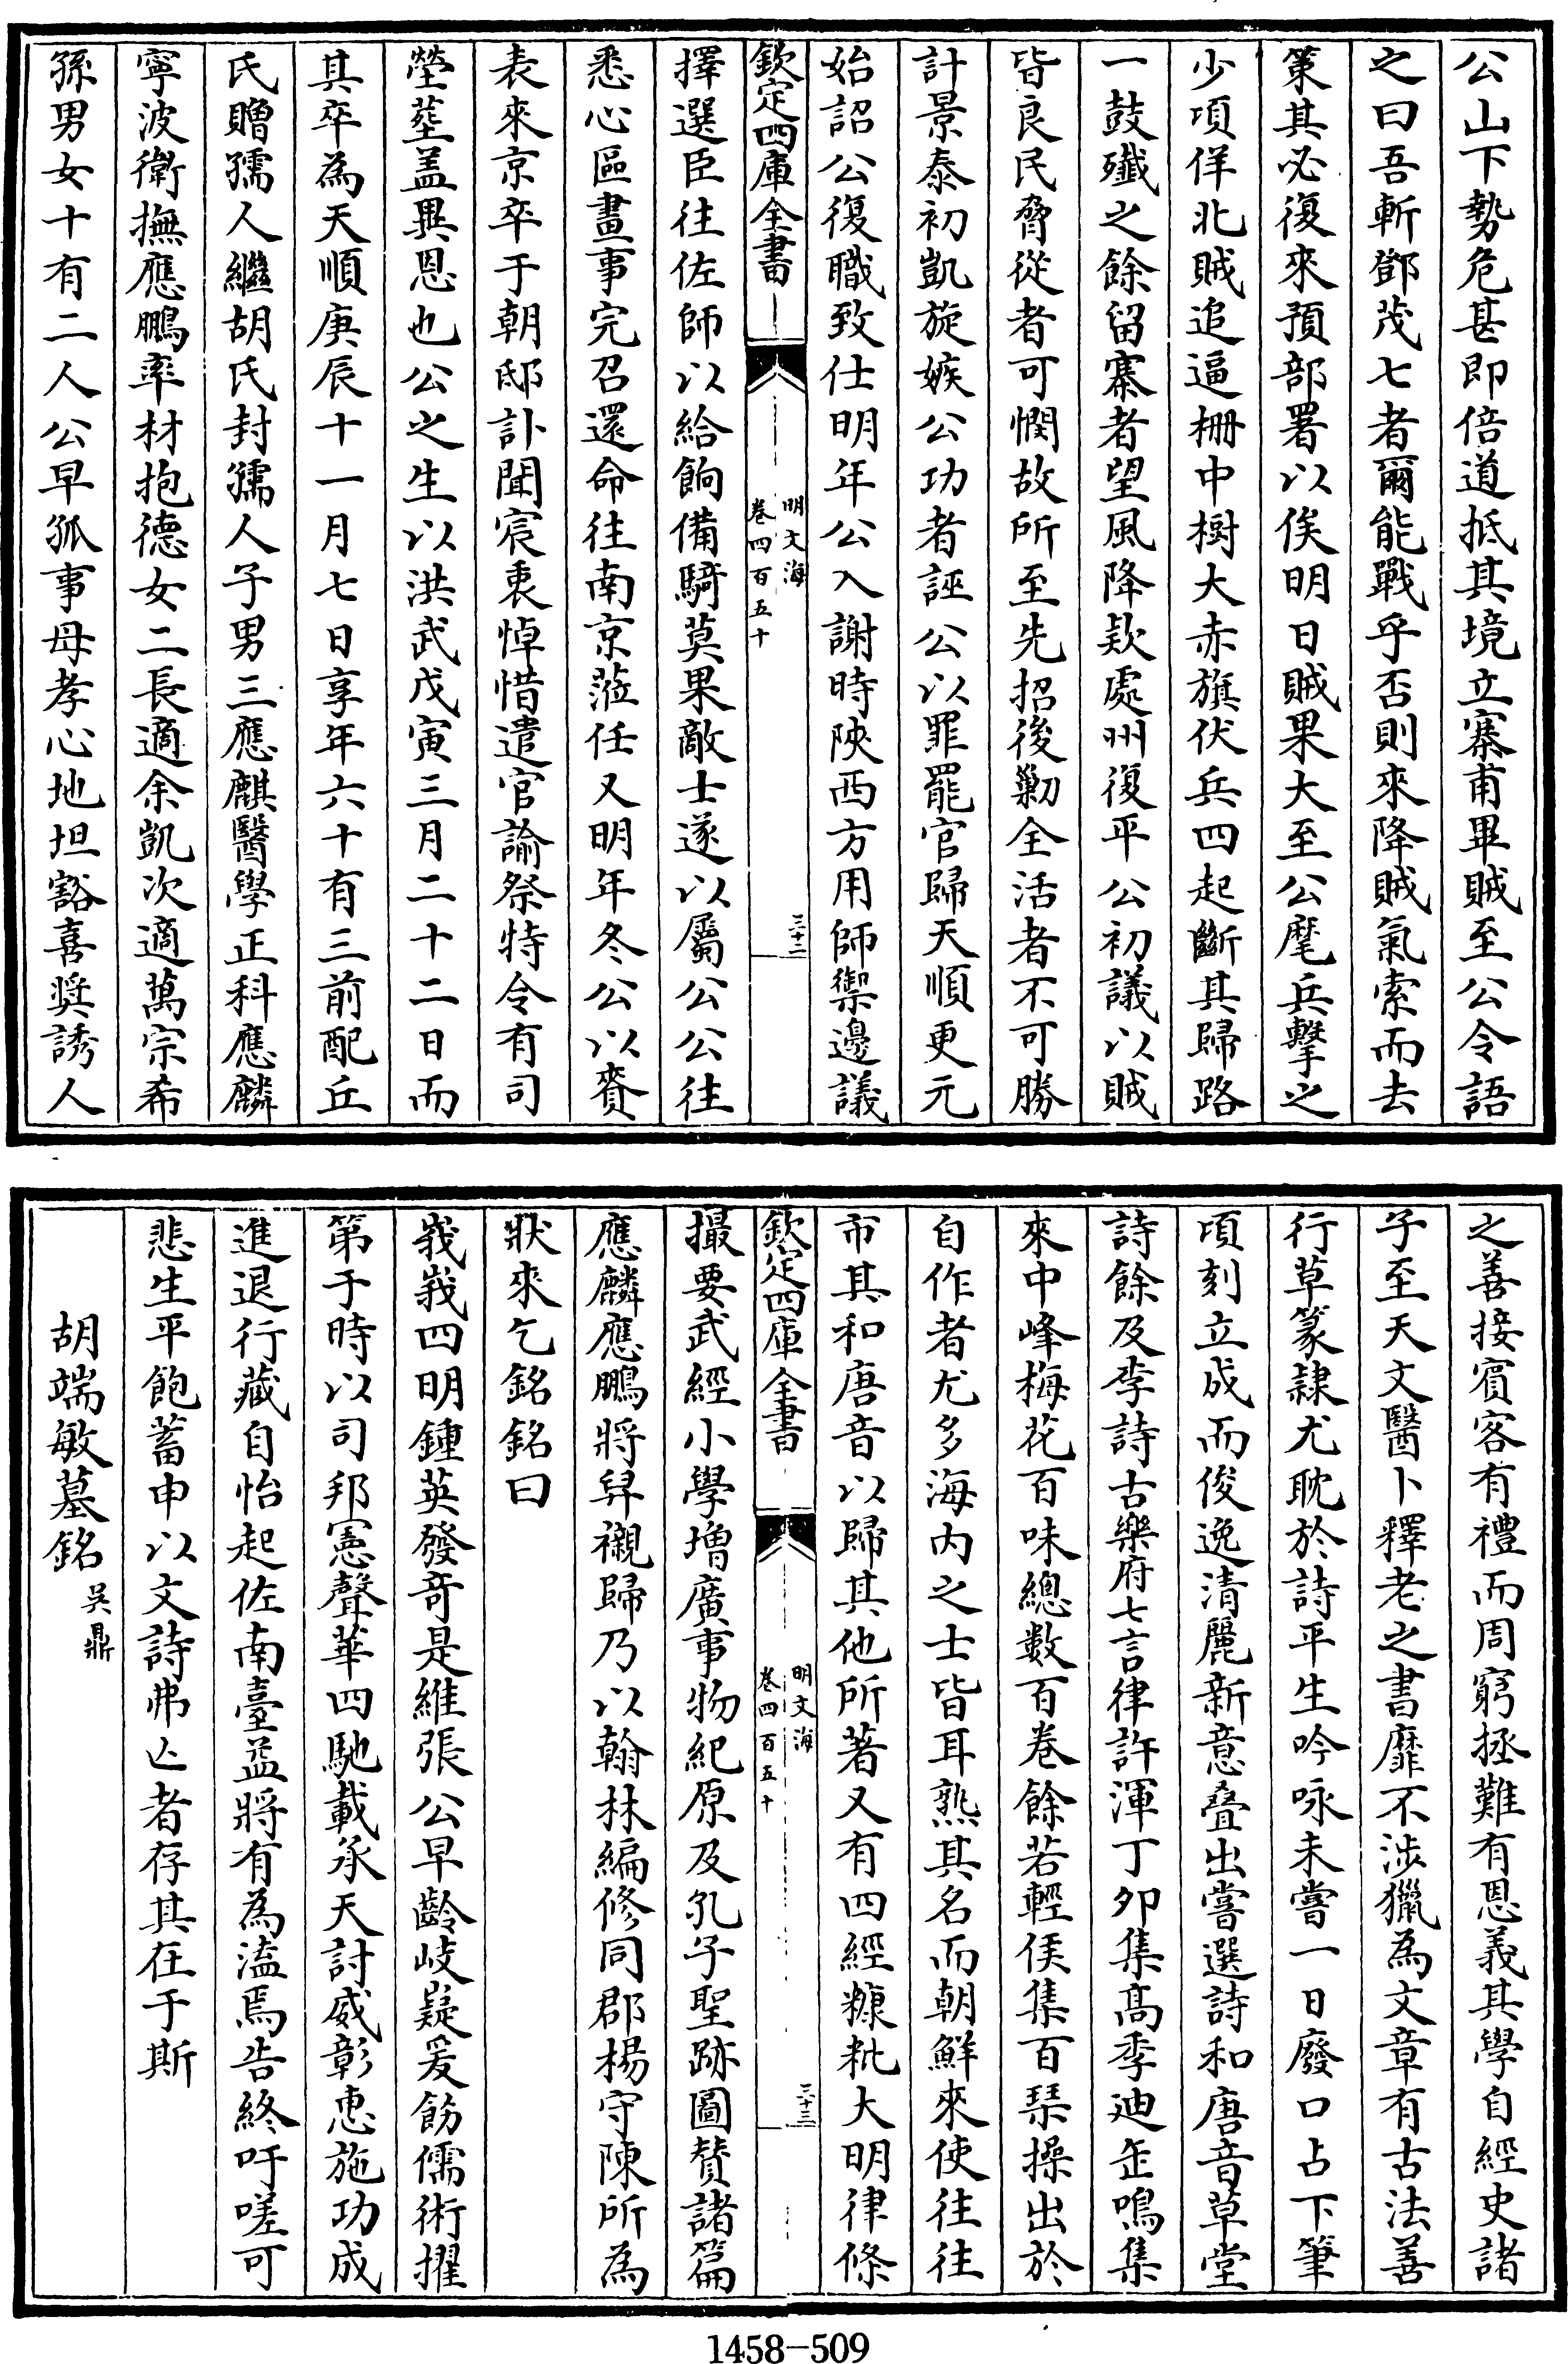 公山下勢危甚即倍道抵其境立寨甫畢賊至公令語
之曰吾斬鄧茂七者爾能戰乎否則來降賊氣索而去
策其必復來預部署以俟明日賊果大至公麾兵擊之
少頃佯北賊追逼柵中樹大赤旗伏兵四起斷其歸路
一鼓殲之餘留寨者望風降欵處州復平公初議以賊
皆良民脅從者可憫故所至先招後勦全活者不可勝
計景泰初凱旋嫉公功者誣公以罪罷官歸天順更元
始詔公復職致仕明年公入謝時陝西方用師禦邊議
欽定四庫全書
明文海
卷四百五十
三十二
擇選臣往佐師以給餉備騎莫果敵士遂以屬公公往
悉心區畫事完召還命往南京蒞任又明年冬公以賫
表來京卒于朝邸訃聞宸衷悼惜遣官諭祭特令有司
塋葬蓋異恩也公之生以洪武戊寅三月二十二日而
其卒為天順庚辰十一月七日享年六十有三前配丘
氏贈孺人繼胡氏封孺人子男三應麒醫學正科應麟
寧波衛撫應鵬率材抱德女二長適余凱次適萬宗希
孫男女十有二人公早孤事母孝心地坦豁喜奨誘人
之善接賓客有禮而周窮拯難有恩義其學自經史諸
子至天文醫卜釋老之書靡不涉獵為文章有古法善
行草篆隸尤耽於詩平生吟咏未嘗一日廢口占下筆
頃刻立成而俊逸清麗新意叠出嘗選詩和唐音草堂
詩餘及李詩古樂府七言律許渾丁卯集髙季迪缶鳴集
來中峰梅花百咏總数百卷餘若輕侯集百琹操出於
自作者尤多海内之士皆耳熟其名而朝鮮來使往往
市其和唐音以歸其他所著又有四經糠粃大明律條
欽定四庫全書
明文海
卷四百五十
三十三
撮要武經小學增廣事物紀原及孔子聖跡圖賛諸篇
應麟應鵬將舁櫬歸乃以翰林編修同郡楊守陳所為
狀來乞銘銘曰
峩峩四明鍾英發竒是維張公早齡岐嶷爰飭儒術擢
第于時以司邦憲聲華四馳載承天討威彰惠施功成
進退行藏自怡起佐南臺益將有為溘焉告終吁嗟可
悲生平飽蓄申以文詩弗亾者存其在于斯
胡端敏墓銘 吳鼎
1458-509